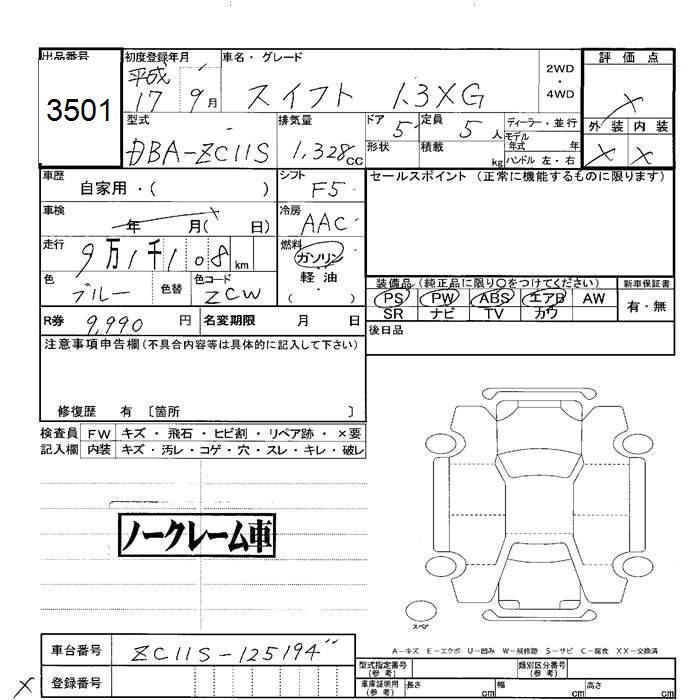 出品番号 初度登録年月 車名・グレード 2WD・4WD 評価点
3501 平成17 9月 スイフト 1.3XG
型式 排気量 ドア 定員 ディーラー・並行 外装 内装
DBA-ZC11S 1,328cc 5 5人 モデル年式 年
形状 積載 kg ハンドル 左・右
車歴 シフト セールスポイント (正常に機能するものに限ります)
自家用・( ) F5
車検 年 月( 日) 冷房 AAC
走行 9万1千108km 燃料 ガソリン・軽油・( )
色 ブルー 色替 色コード ZCW
装備品(純正品に限り○をつけてください) 新車保証書
PS PW ABS エアB AW 有・無
SR ナビ TV カワ
R券 9,990円 名変期限 月 日 後日品
注意事項申告欄(不具合内容等は具体的に記入して下さい)
修復歴 有 〔箇所 〕
検査員 FW キズ・飛石・ヒビ割・リペア跡・×要
記入欄 内装 キズ・汚レ・コゲ・穴・スレ・キレ・破レ
ノークレーム車
スペア
A-キズ E-エクボ U-凹み W-補修跡 S-サビ C-腐食 XX-交換済
車台番号 ZC11S-125194
登録番号
型式指定番号(参考) 類別区分番号(参考)
車庫証明用(参考) 長さ cm 幅 cm 高さ cm